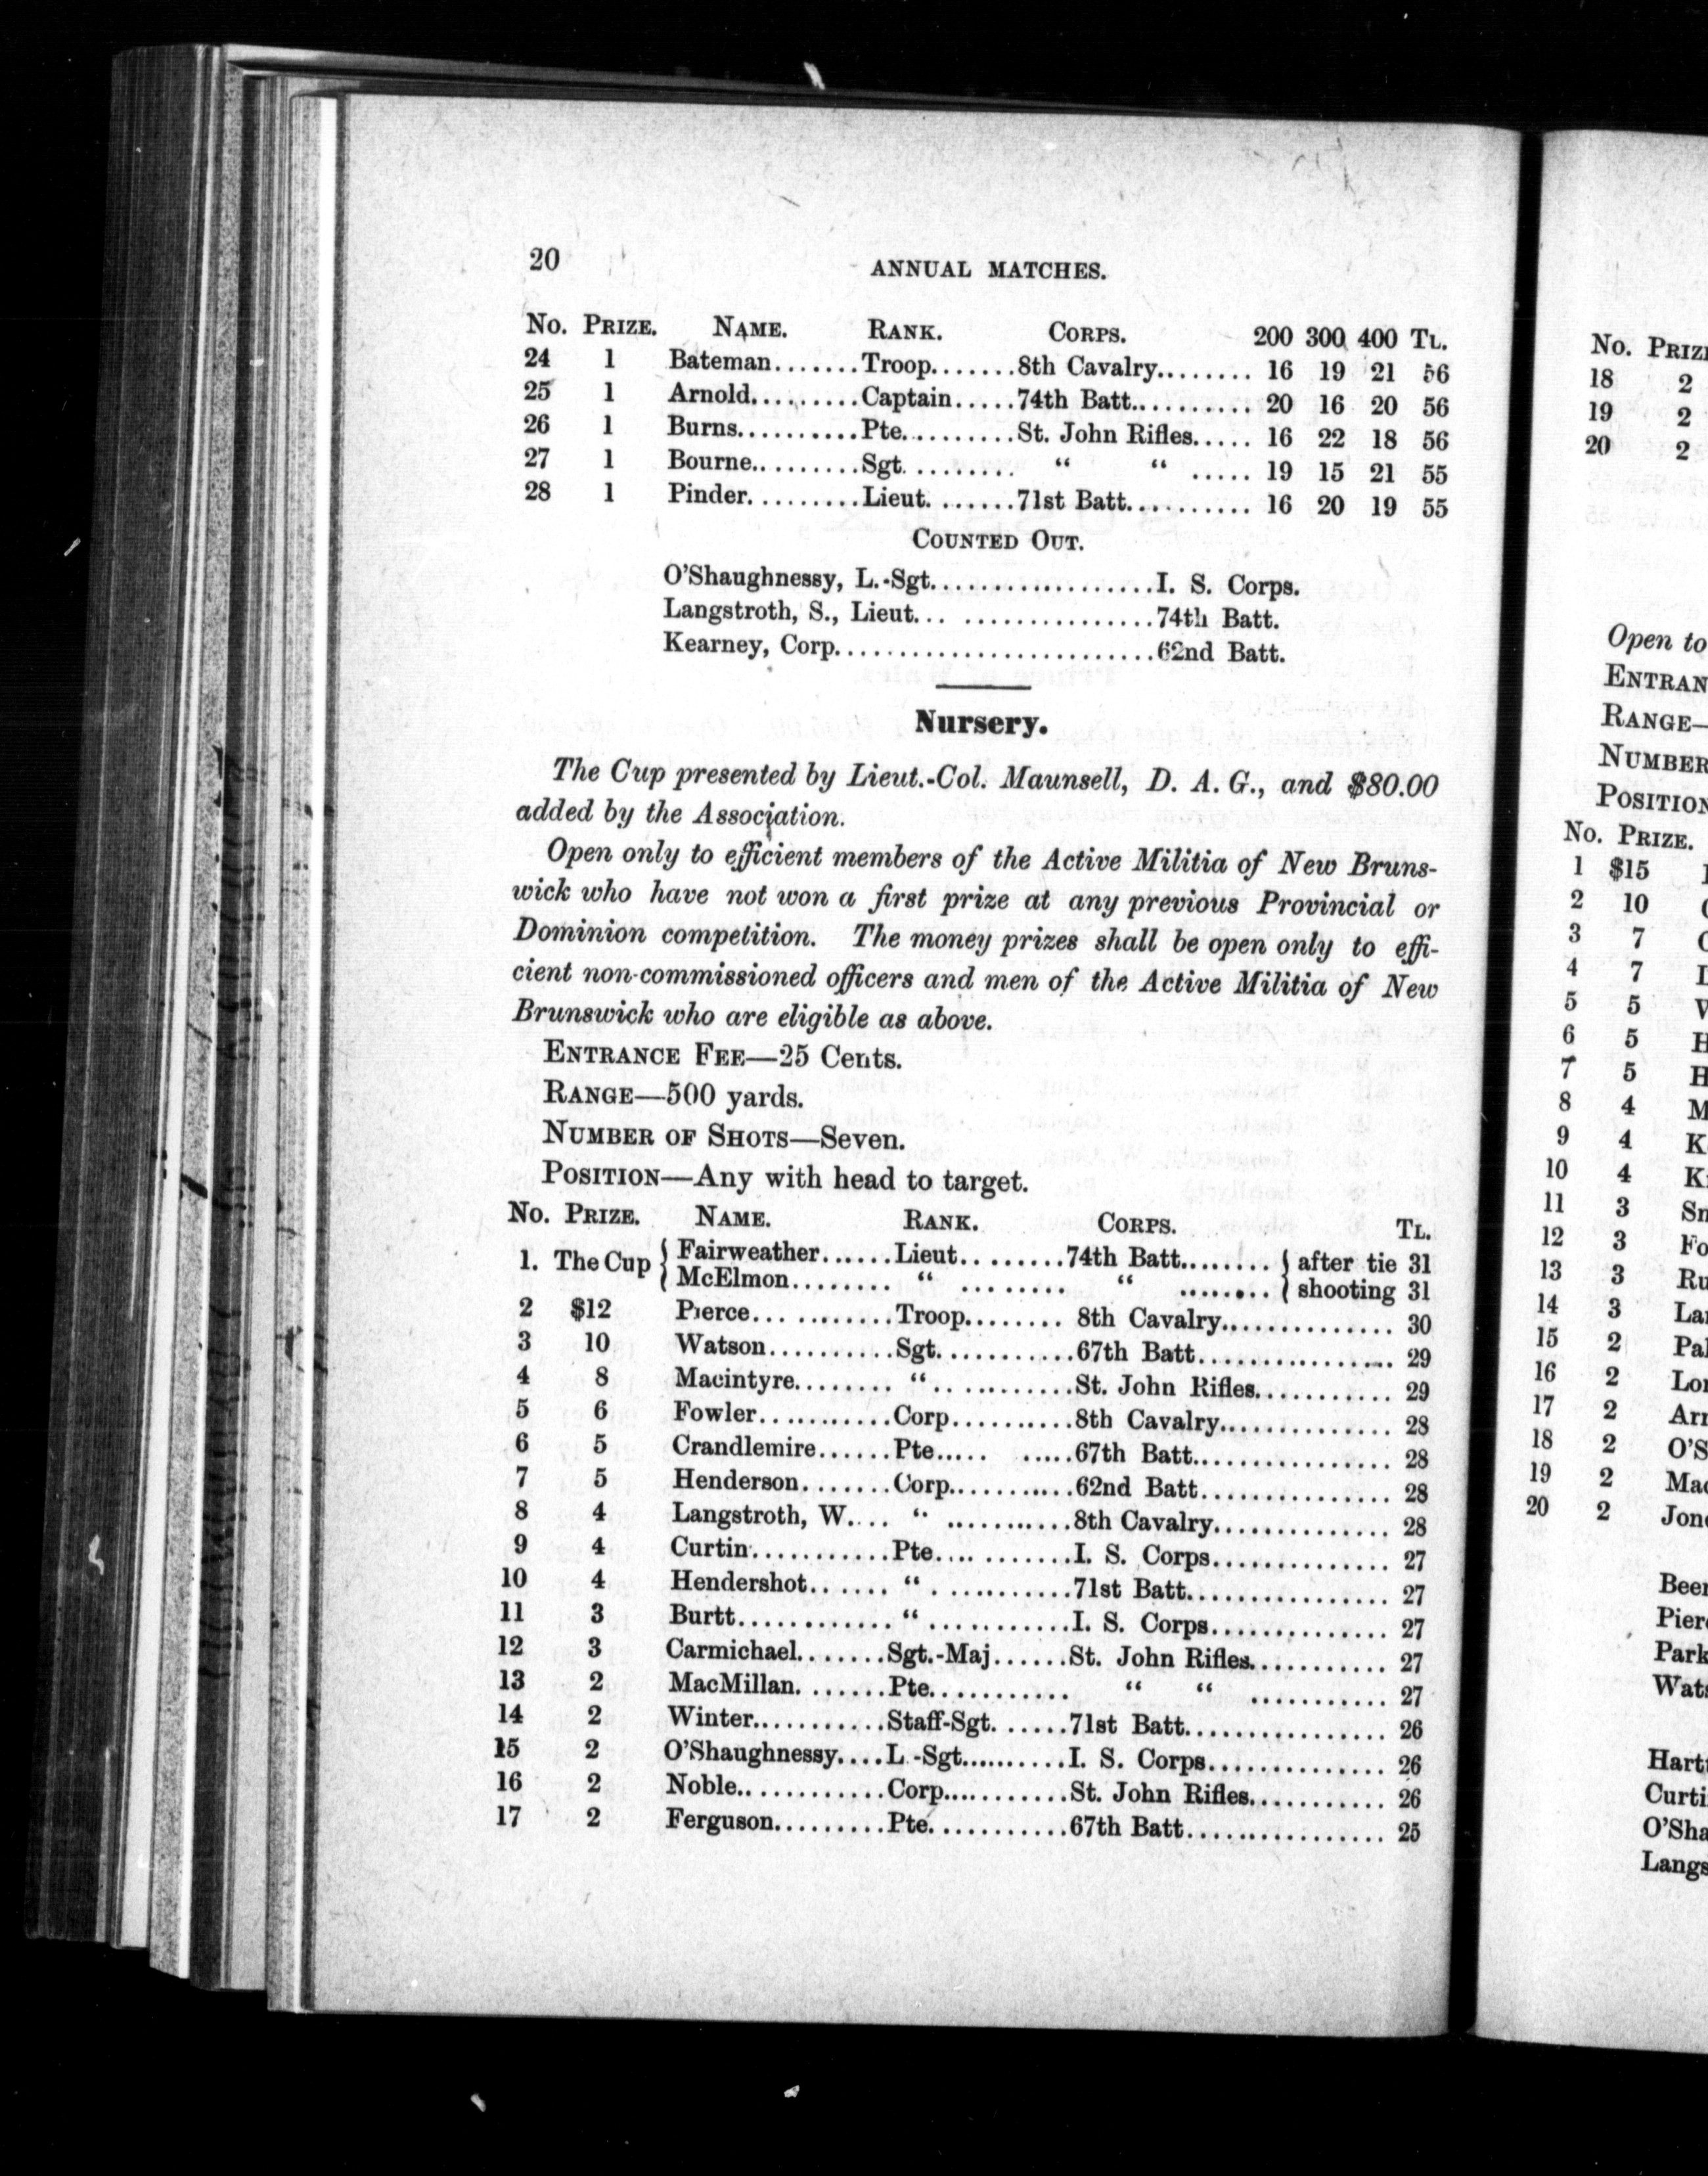 20
ANNUAL MATCHES.
No. PRIZE. NAME. RANK. CORPS. 200 300 400 TL.
24 1 Bateman.......Troop.......8th Cavalry........ 16 19 21 56
25 1 Arnold.........Captain.....74th Batt.......... 20 16 20 56
26 1 Burns..........Pte.........St. John Rifles..... 16 22 18 56
27 1 Bourne.........Sgt......... “ “ ..... 19 15 21 55
28 1 Pinder.........Lieut.......71st Batt.......... 16 20 19 55
COUNTED OUT.
O'Shaughnessy, L.-Sgt....................I. S. Corps.
Langstroth, S., Lieut... ...............74th Batt.
Kearney, Corp.........................62nd Batt.
Nursery.
The Cup presented by Lieut.-Col. Maunsell, D. A. G., and $80.00
added by the Association.
Open only to efficient members of the Active Militia of New Bruns-
wick who have not won a first prize at any previous Provincial or
Dominion competition. The money prizes shall be open only to effi-
cient non-commissioned officers and men of the Active Militia of New
Brunswick who are eligible as above.
ENTRANCE FEE—25 Cents.
RANGE—500 yards.
NUMBER OF SHOTS—Seven.
POSITION—Any with head to target.
No. PRIZE. NAME. RANK. CORPS. TL.
1. The Cup { Fairweather......Lieut.........74th Batt........ { after tie 31
McElmon........ “ ........ “ ........ { shooting 31
2 $12 Pierce... .........Troop........ 8th Cavalry.............. 30
3 10 Watson..........Sgt...........67th Batt................ 29
4 8 Macintyre........ “.. ..........St. John Rifles........... 29
5 6 Fowler...........Corp..........8th Cavalry.............. 28
6 5 Crandlemire......Pte..... .....67th Batt................ 28
7 5 Henderson.......Corp..........62nd Batt............... 28
8 4 Langstroth, W.... “ ...........8th Cavalry.............. 28
9 4 Curtin...........Pte............I. S. Corps.............. 27
10 4 Hendershot....... “ . ..........71st Batt................ 27
11 3 Burtt............ “ ...........I. S. Corps.............. 27
12 3 Carmichael.......Sgt.-Maj......St. John Rifles........... 27
13 2 MacMillan. ......Pte........... “ “ ........... 27
14 2 Winter...........Staff-Sgt......71st Batt................ 26
15 2 O'Shaughnessy....L -Sgt..........I. S. Corps.............. 26
16 2 Noble............Corp...........St. John Rifles........... 26
17 2 Ferguson.........Pte...........67th Batt................ 25
No. PRIZ
18 2
19 2
20 2
Open to
ENTRAN
RANGE—
NUMBER
POSITION
No. PRIZE.
1 $15
2 10
3 7
4 7
5 5
6 5 H
7 5 H
8 4 M
9 4 K
10 4 K
11 3 Sn
12 3 Fo
13 3 Ru
14 3 La
15 2 Pal
16 2 Lo
17 2 Arr
18 2 O'S
19 2 Mac
20 2 Jon
Beer
Pier
Park
Wats
Hart
Curti
O'Sha
Langs